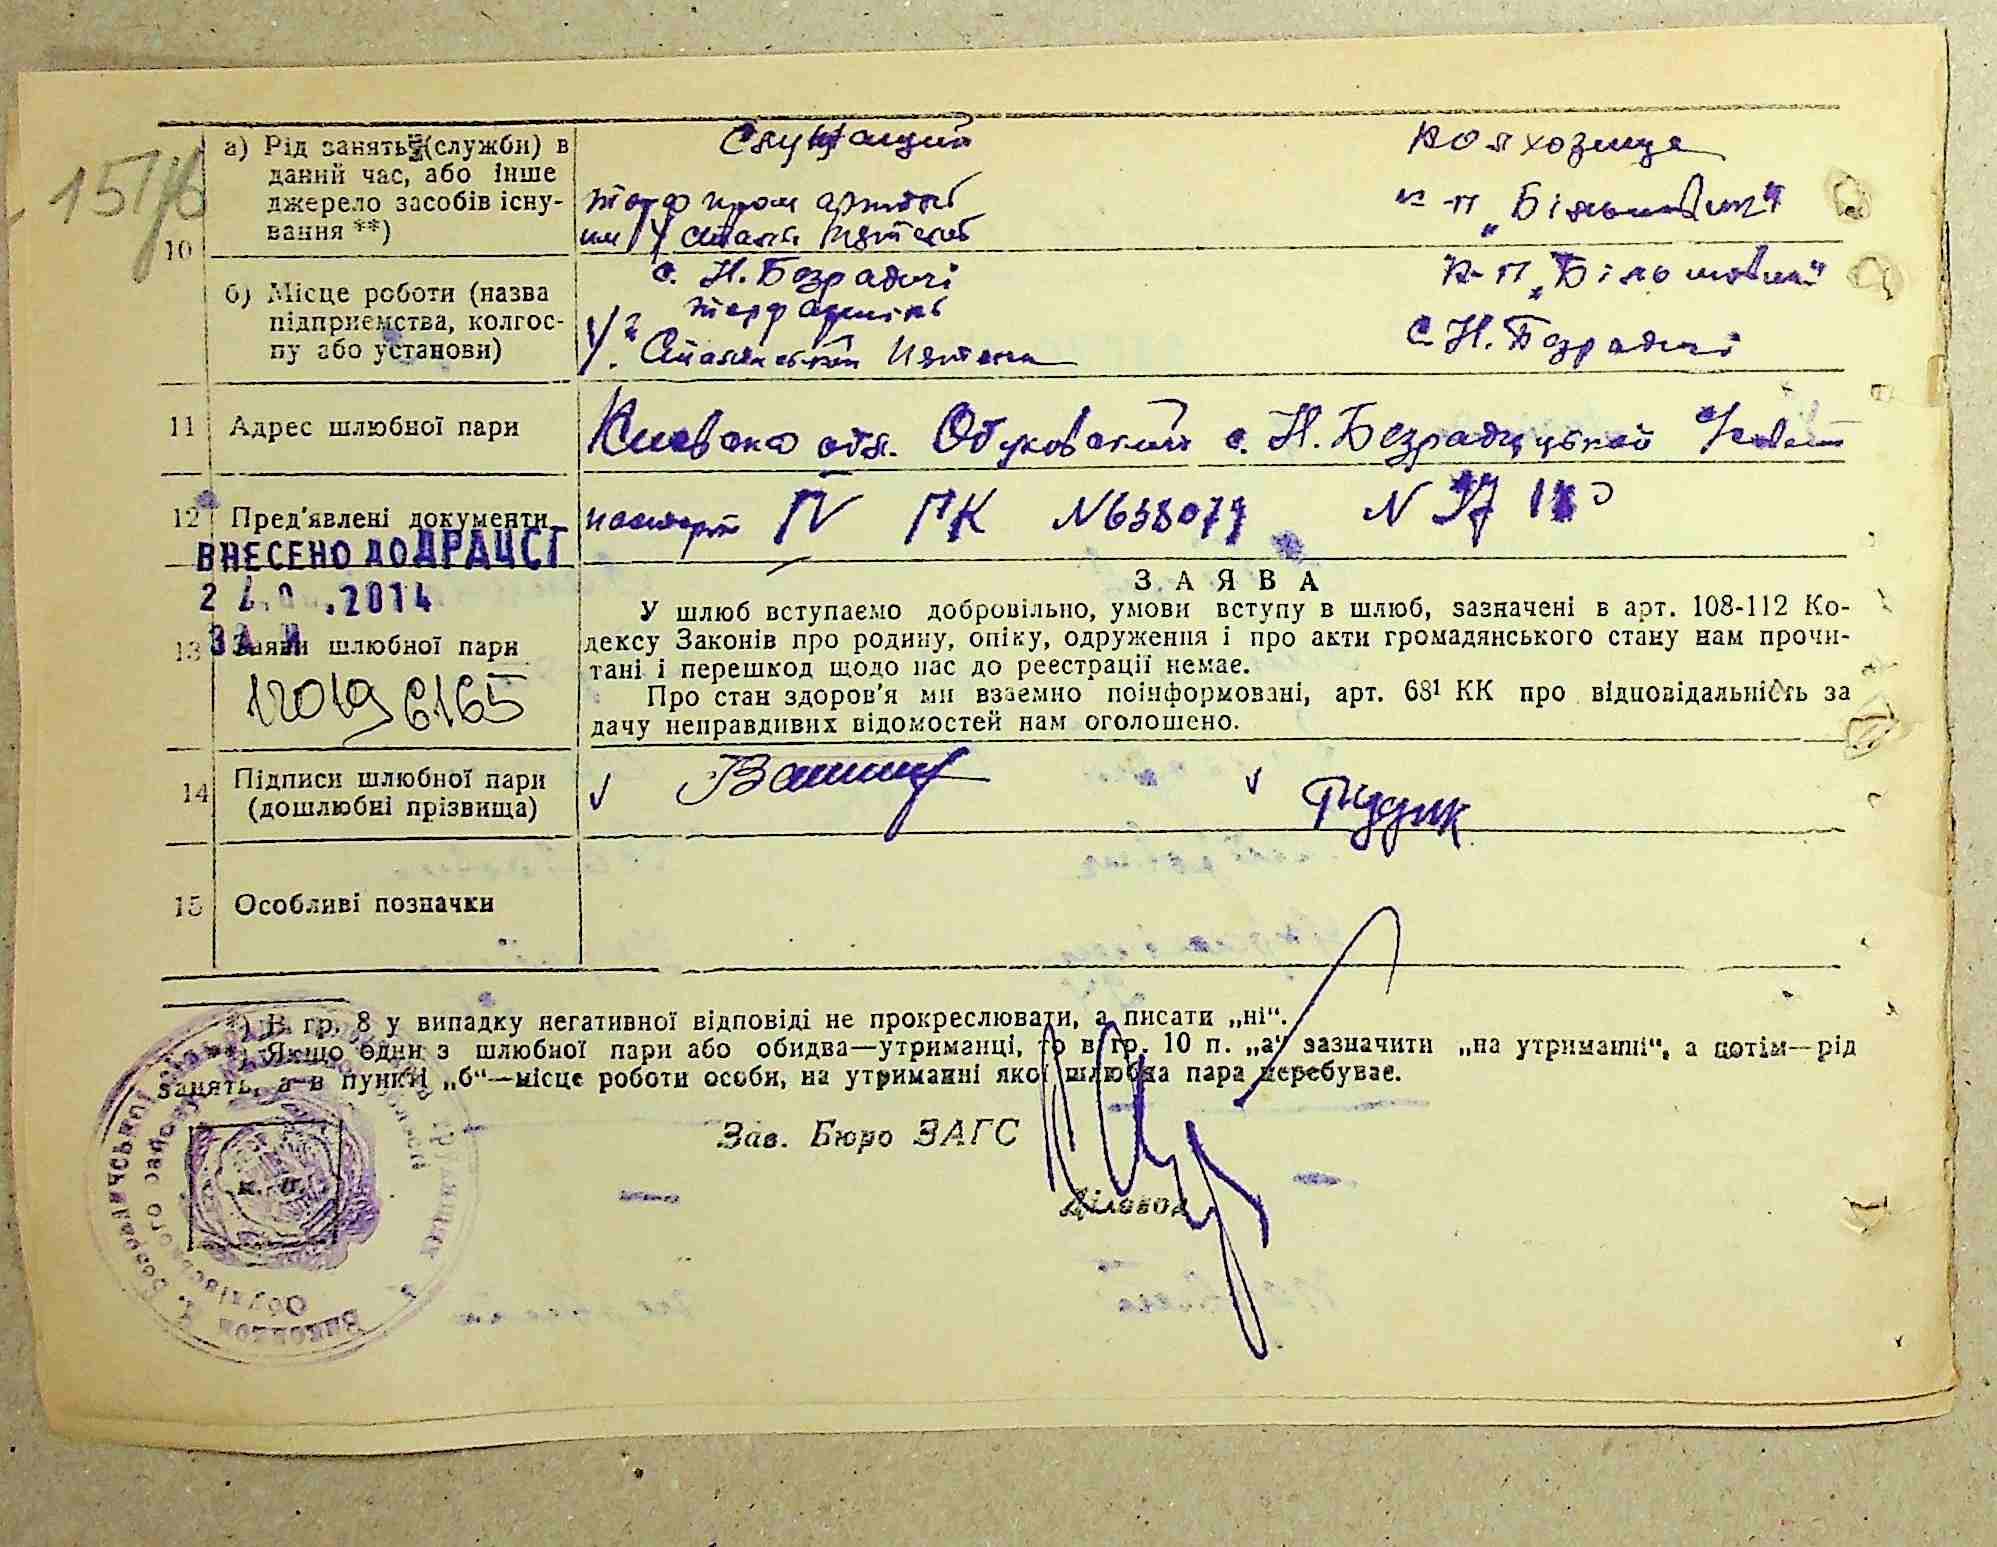 а) Рід занять (служби) в
даний час, або інше
джерело засобів існу-
вання **)
10
Служащий
торф пром артіль
им
колхозница
к-п „Більшовик"
б) Місце роботи (назва
підприємства, колгос-
пу або установи)
с. Н. Безрадичі
торф артіль
к-п „Більшовик"
с. Н. Безрадичі
11 Адрес шлюбної пари
Киевска обл. Обуковский с. Н. Безрадицькой
12 Пред'явлені документи
паспорт IV ПК N638079 N
ВНЕСЕНО ДО ДРАЦСГ
.2014
ЗА №
13 Заяви шлюбної пари
ЗАЯВА
У шлюб вступаємо добровільно, умови вступу в шлюб, зазначені в арт. 108-112 Ко-
дексу Законів про родину, опіку, одруження і про акти громадянського стану нам прочи-
тані і перешкод щодо нас до реєстрації немає.
Про стан здоров'я ми взаємно поінформовані, арт. 68¹ КК про відповідальність за
дачу неправдивих відомостей нам оголошено.
14 Підписи шлюбної пари
(дошлюбні прізвища)
Гудзик
15 Особливі позначки
*) В гр. 8 у випадку негативної відповіді не прокреслювати, а писати „ні".
**) Якщо один з шлюбної пари або обидва—утриманці, то в гр. 10 п. „а" зазначити „на утриманні", а потім—рід
занять, а в пункті „б"—місце роботи особи, на утриманні якої шлюбна пара перебуває.
Зав. Бюро ЗАГС
Діловод
м. п.